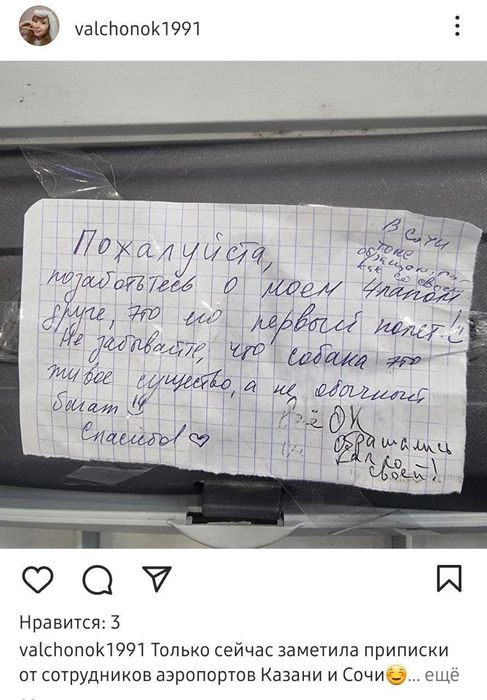 valchonok1991
В Сочи
тоже
обращались
как со своей
Пожалуйста,
позаботьтесь о моем 4лапом
друге, это его первый полет!!
Не забывайте, что собака это
живое существо, а не обычный
багаж!!
Спасибо! ♡
Всё ОК
обращались
как со
своей!
Нравится: 3
valchonok1991 Только сейчас заметила приписки
от сотрудников аэропортов Казани и Сочи😊... ещё